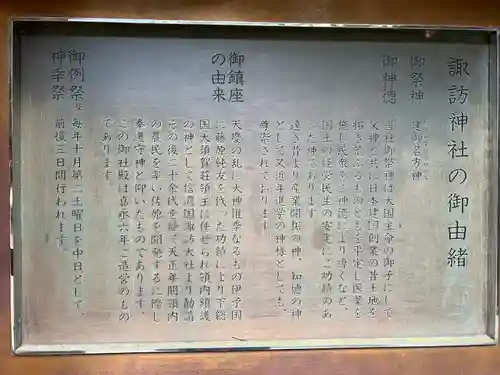 諏訪神社の御由緒
御祭神
建御名方神
御神徳
当社御祭神は大国主命の御子にして
父神と共に日本建国創業の昔土地を
拓き荒ぶるものどもを平定し医薬を
施し民衆をご神徳により導くなど、
国土の経営民生の安定にご功績のあ
った神であります
遠き昔より産業開拓の神、知徳の神
として又近年進学の神様としても、
尊崇されております
御鎮座
の由来
天慶の乱に大神惟季なるもの伊予国
に藤原純友を伐った功績により下総
国大須賀荘領主に任ぜられ領内鎮護
の神として信濃国諏訪大社より勧請
その後二十余代を経て天正年間領内
の農民を率い佐原を開発するに際し
奉遷守神と仰いだものであります。
この御社殿は嘉永六年ご造営のもの
であります。
御例祭及
神幸祭
毎年十月第二土曜日を中日として、
前後三日間行われます。